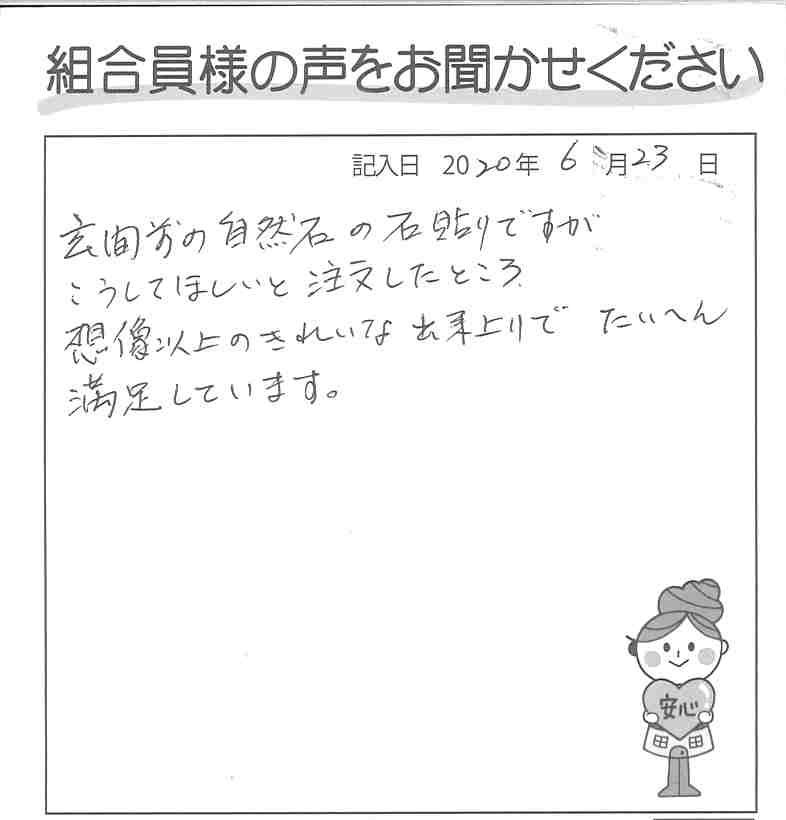 組合員様の声をお聞かせください
記入日 2020年 6月23日
玄関前の自然石の石貼りですが
こうしてほしいと注文したところ
想像以上のきれいな出来上りで たいへん
満足しています。
安心